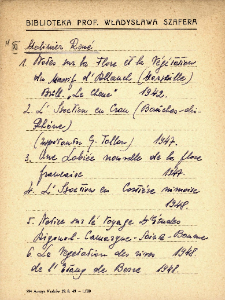 BIBLIOTEKA PROF. WŁADYSŁAWA SZAFERA
Molinier René
1. Notes sur la Flore et la Végétation
du Massif d'Allauch (Marseille)
Bull. "Le Chêne" 1942.
2. L'Excursion en Crau (Bouches-du-
Rhône)
G. Tallon) 1947.
3. Une Labiée nouvelle de la flore
française 1947.
4. L'Excursion en Corrèze 1948.
5. Notice sur le Voyage d'Etudes
Camargue - Sainte-Baume
6. La Végetation des rives 1948.
de l'Etang de Berre 1948.